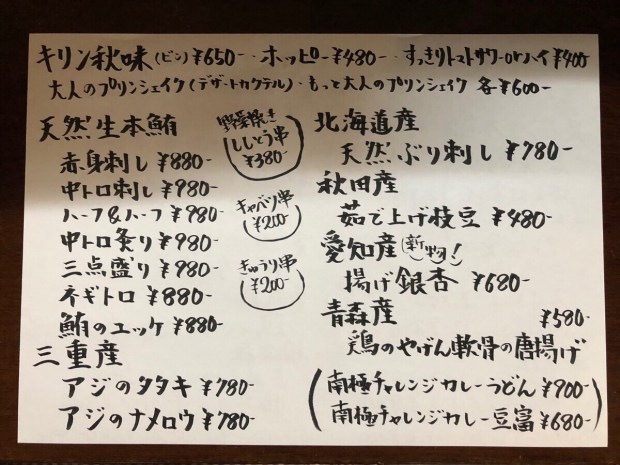 キリン秋味(ビン)¥650-・ホッピー¥480-・すっきりトマトサワーorハイ¥400
大人のプリンシェイク(デザートカクテル)・もっと大人のプリンシェイク 各¥600-
天然生本鮪
赤身刺し ¥880-
中トロ刺し ¥980-
ハーフ&ハーフ ¥980-
中トロ炙り ¥980-
三点盛り ¥980-
ネギトロ ¥880-
鮪のユッケ ¥880-
三重産
アジのタタキ ¥780-
アジのナメロウ ¥780-
野菜焼き
ししとう串
¥380-
キャベツ串
¥200-
きゅうり串
¥200-
北海道産
天然ぶり刺し ¥780-
秋田産
茹で上げ枝豆 ¥480-
愛知産 新物!
揚げ銀杏 ¥680-
青森産 ¥580-
鶏のやげん軟骨の唐揚げ
(南極チャレンジカレーうどん ¥900-
南極チャレンジカレー豆富 ¥680-)